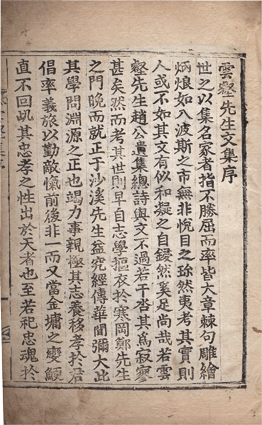 雲壑先生文集序
世之以集名家者指不勝屈而率皆大章棘句雕繪
炳烺如入波斯之市無非悅目之珎然夷考其實則
人或不如其文有似和凝之自鏤然奚足尚哉若雲
壑先生趙公遺集總詩與文不過若干沓其爲寂寥
甚矣然而考其世則早自志學摳衣於寒岡鄭先生
之門晚而就正于沙溪先生益究經傳華聞彌大此
其學問淵源之正也竭力事親極其志養移孝於君
倡率義旅以勤敵愾前後非一而又當金墉之變鯁
直不回此其忠孝之性出於天者也至若祀忠魂於